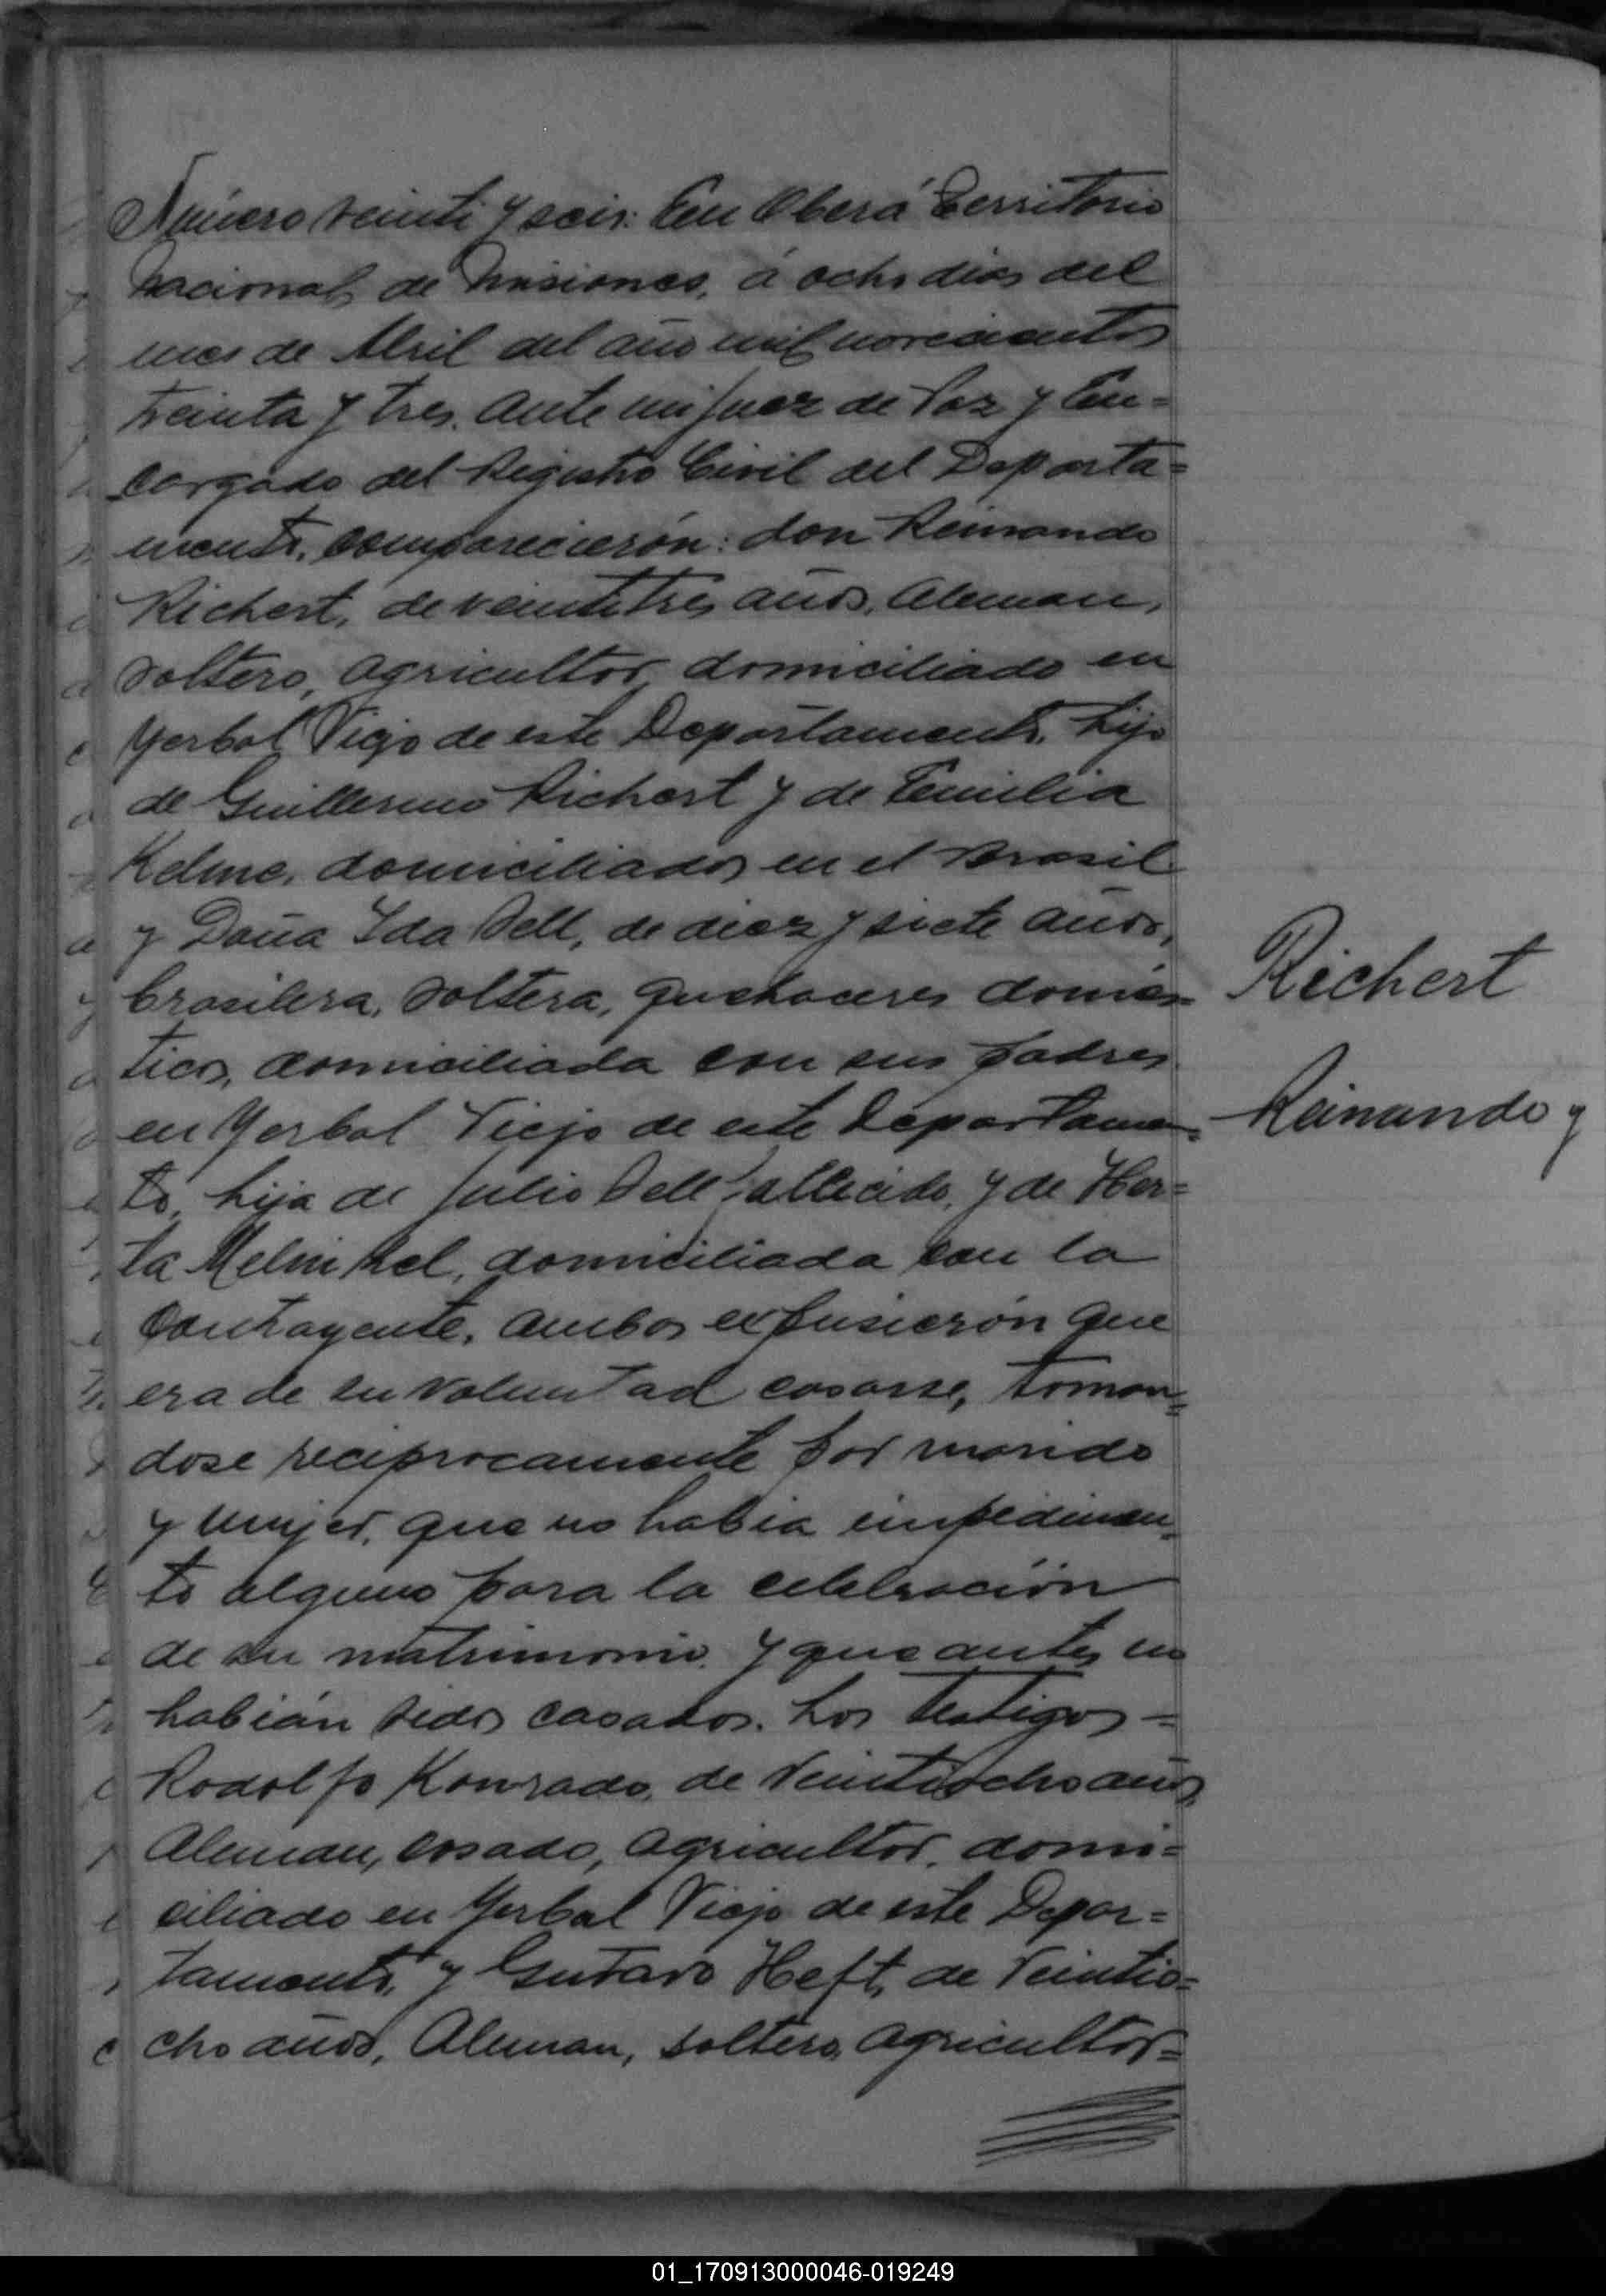 Número veinti y seis: En Oberá Territorio
Nacional, de Misiones, á ocho dias del
mes de Abril del año mil novecientos
treinta y tres. Ante mi Juez de Paz y En=
cargado del Registro Civil del Departa=
mento, comparecierón: don Reinando
Richert, de veintitres años, Aleman,
soltero, agricultor, domiciliado en
Yerbal Viejo de este Departamento, hijo
de Guillermo Richert y de Emilia
Kelme, domiciliados en el Brasil
y Doña Ida Dell, de diez y siete años,
brasilera, soltera, quehaceres domés=
ticos, domiciliada con sus padres
en Yerbal Viejo de este Departamen=
to, hija de Julio Dell fallecido, y de Her=
ta, domiciliada con la
contrayente. Ambos expusierón que
era de su voluntad casarse, toman=
dose reciprocamente por marido
y mujer, que no habia impedimen=
to alguno para la celebración
de su matrimonio. y que antes no
habián sidos casados. Los testigos =
Rodolfo Konrado, de veintiocho años,
Aleman, casado, agricultor, domi=
ciliado en Yerbal Viejo de este Depar=
tamento, y Gustavo Heft, de veintio=
cho años, Aleman, soltero, agricultor=
Richert
Reinando y
01_170913000046-019249